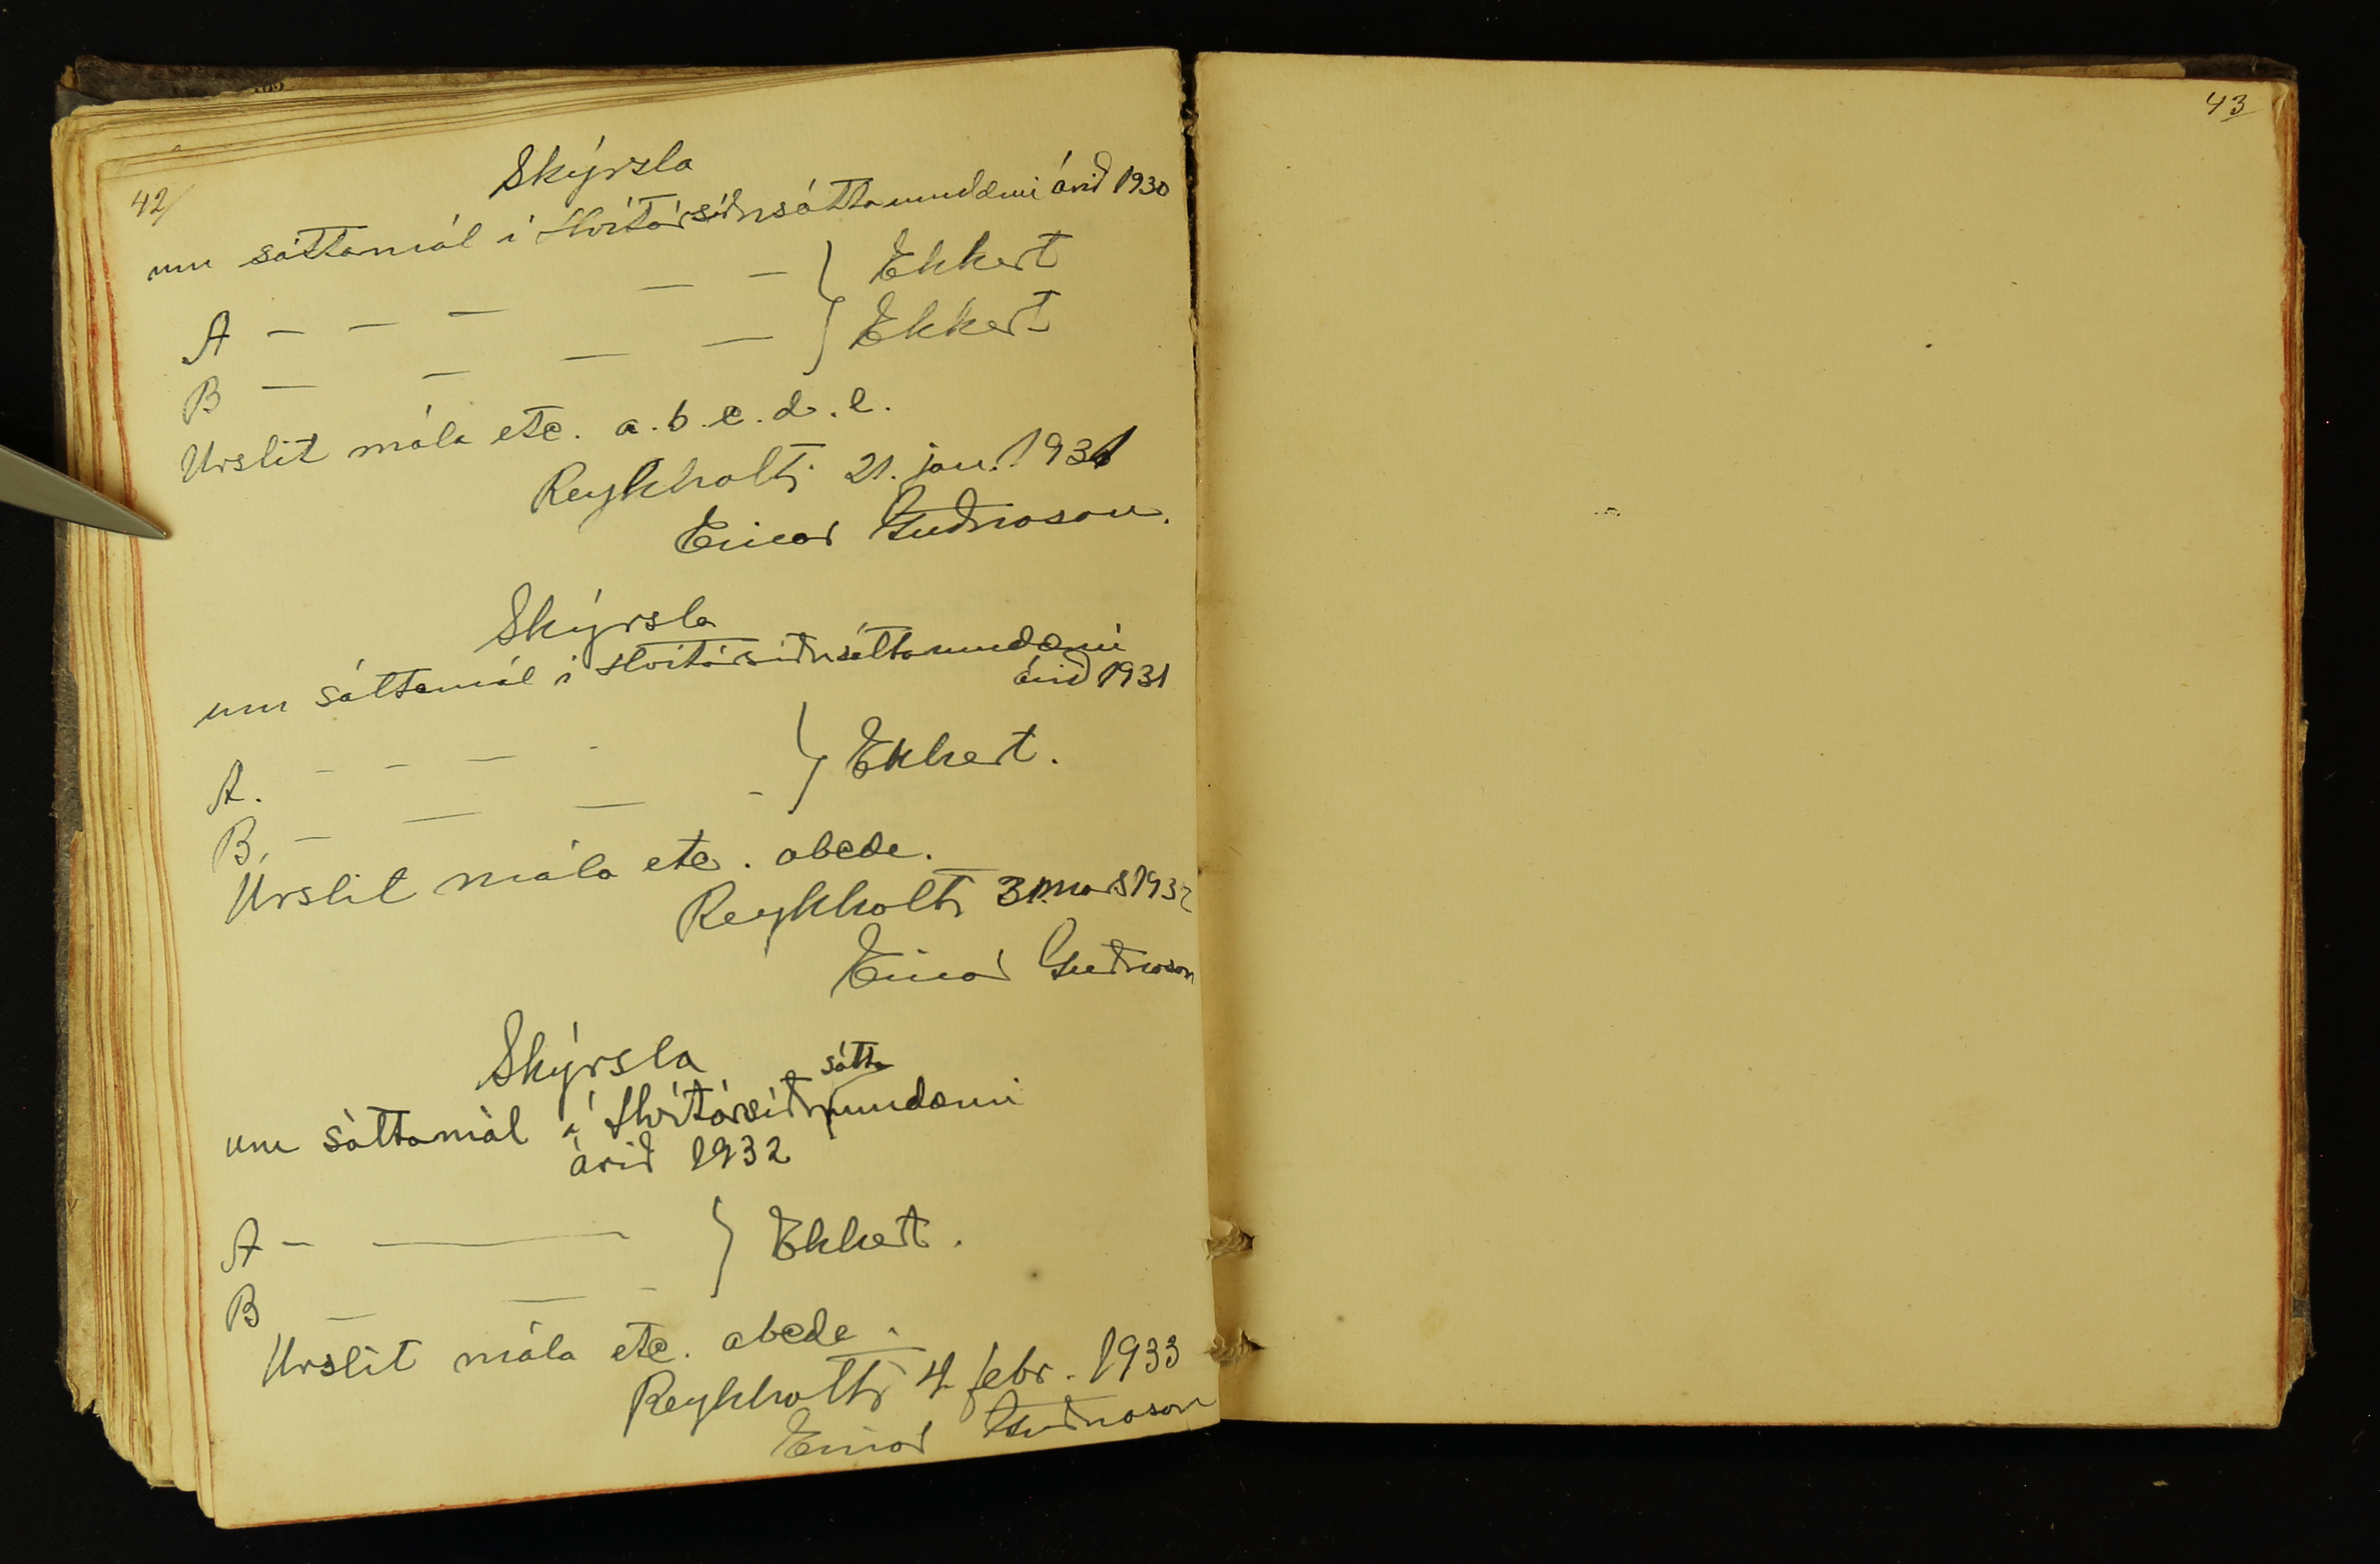 42/
Skýrsla
um sáttamál í Hvítársíðusáttaumdæmi árið 1930
A — — — — — } Ekkert
B — — — — — } Ekkert
Urslit mála etc. a. b. c. d. e.
Reykholti 21. jan. 1931
Einar Guðnason.
Skýrsla
um sáttamál í Hvítársíðusáttaumdæmi
árið 1931
A. - - — - } Ekkert.
B. — — — -
Urslit mála etc. abcde.
Reykholti 31. mars 1932
Einar Guðnason
Skýrsla
sátta
um sáttamál í Hvítársíðuumdæmi
árið 1932
A — — } Ekkert.
B — — -
Urslit mála etc. abcde.
Reykholti 4 febr. 1933
Einar Guðnason
43